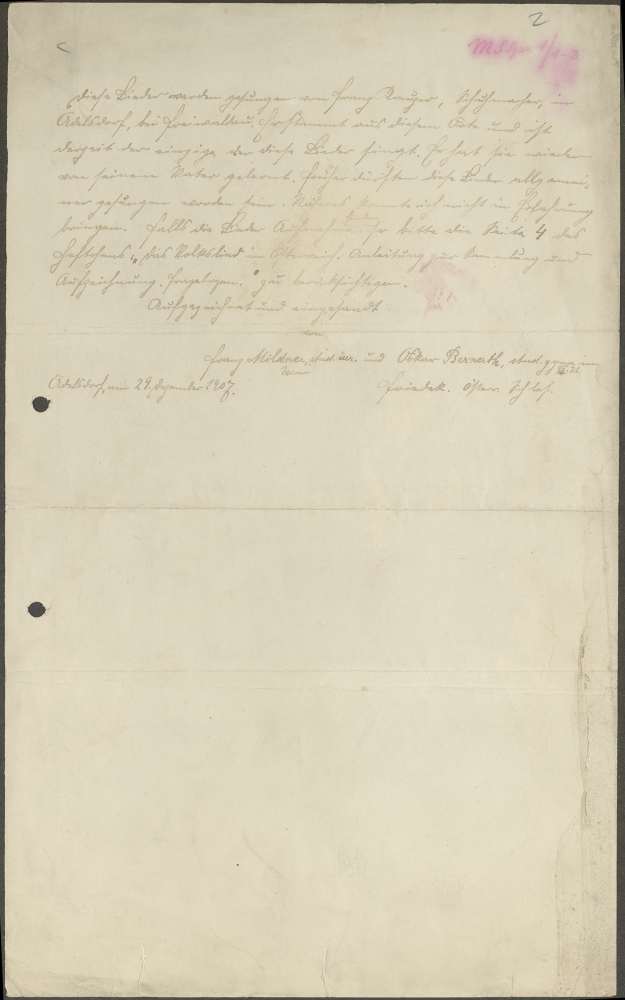 2
M.Schr. 1/1-3
Diese Lieder werden gesungen von Franz Kauper, Schuhmacher, in
Adelsdorf, bei Freiwaldau. Er stammt aus diesem Orte und ist
derzeit der einzige, der diese Lieder singt. Er hat sie wieder
von seinem Vater gelernt. Früher dürften diese Lieder allgemei-
ner gesungen worden sein. Näheres konnte ich nicht in Erfahrung
bringen. Falls die Lieder Aufnahme finden, so bitte die Seite 4 des
Heftchens „Das Volkslied in Österreich. Anleitung zur Sammlung und
Aufzeichnung. Fragebogen.“ zu berücksichtigen.
Aufgezeichnet und eingesandt
von
Franz Möldner, stud. iur. und Oskar Bernath, stud. gymn.
Wien
Friedek. Öster. Schles.
Adelsdorf, am 29. Dezember 1907.